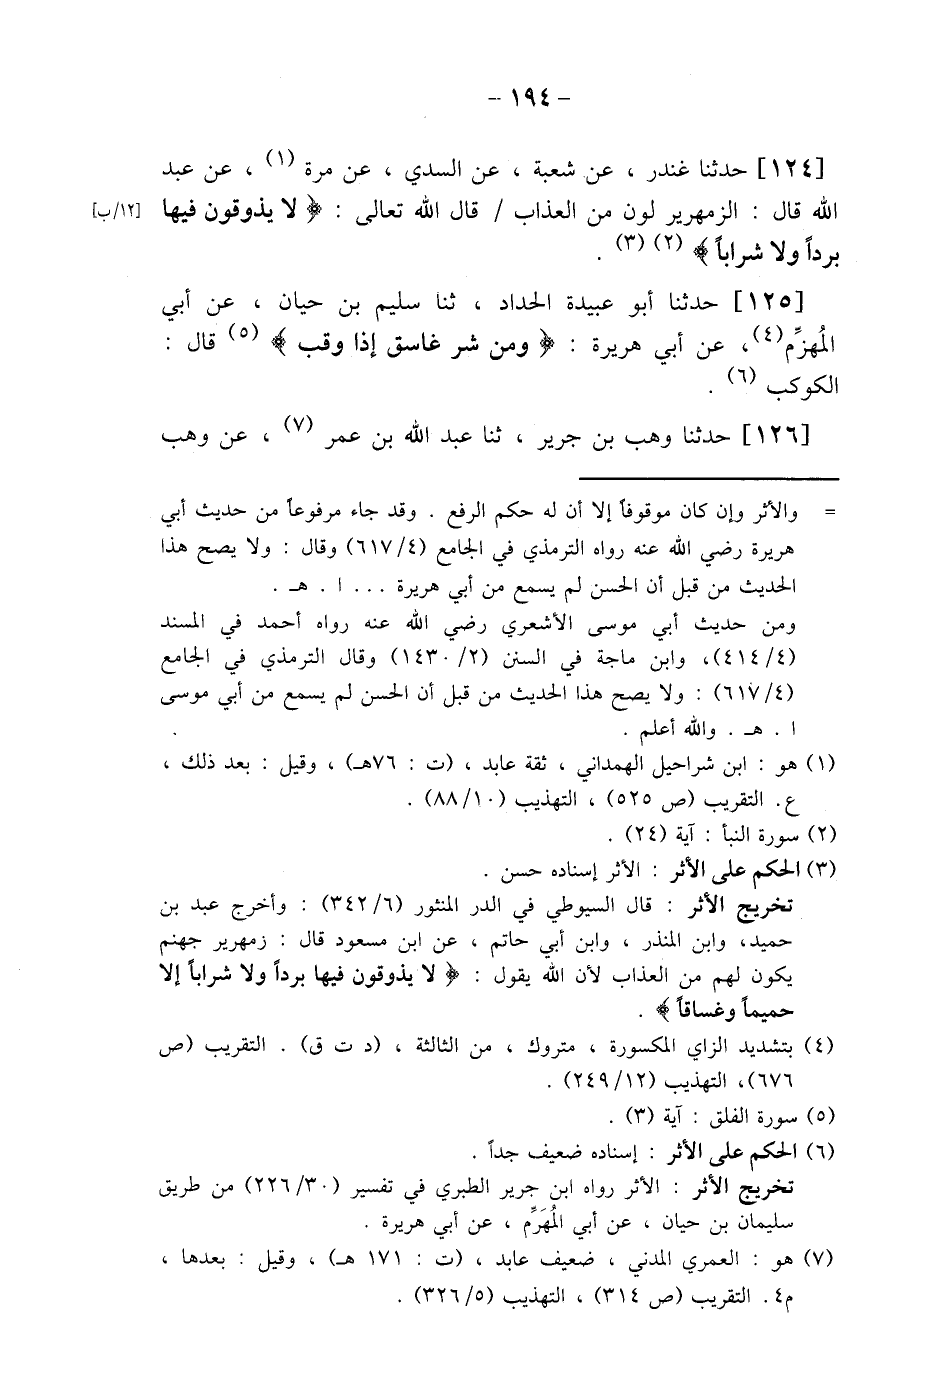 – ١٩٤ –
[١٢٤] حدثنا غندر ، عن شعبة ، عن السدي ، عن مرة (١) ، عن عبد
الله قال : الزمهرير لون من العذاب / قال الله تعالى : ﴿ لا يذوقون فيها [١٢/ب]
برداً ولا شراباً ﴾ (٢) (٣) .
[١٢٥] حدثنا أبو عبيدة الحداد ، ثنا سليم بن حيان ، عن أبي
المُهزِّم(٤)، عن أبي هريرة : ﴿ ومن شر غاسق إذا وقب ﴾ (٥) قال :
الكوكب (٦) .
[١٢٦] حدثنا وهب بن جرير ، ثنا عبد الله بن عمر (٧) ، عن وهب
= والأثر وإن كان موقوفاً إلا أن له حكم الرفع . وقد جاء مرفوعاً من حديث أبي
هريرة رضي الله عنه رواه الترمذي في الجامع (٦١٧/٤) وقال : ولا يصح هذا
الحديث من قبل أن الحسن لم يسمع من أبي هريرة ... ا . هـ .
ومن حديث أبي موسى الأشعري رضي الله عنه رواه أحمد في المسند
(٤١٤/٤)، وابن ماجة في السنن (١٤٣٠/٢) وقال الترمذي في الجامع
(٦١٧/٤) : ولا يصح هذا الحديث من قبل أن الحسن لم يسمع من أبي موسى
ا . هـ . والله أعلم .
(١) هو : ابن شراحيل الهمداني ، ثقة عابد ، (ت : ٧٦هـ) ، وقيل : بعد ذلك ،
ع. التقريب (ص ٥٢٥) ، التهذيب (٨٨/١٠) .
(٢) سورة النبأ : آية (٢٤) .
(٣) الحكم على الأثر : الأثر إسناده حسن .
تخريج الأثر : قال السيوطي في الدر المنثور (٣٤٢/٦) : وأخرج عبد بن
حميد، وابن المنذر ، وابن أبي حاتم ، عن ابن مسعود قال : زمهرير جهنم
يكون لهم من العذاب لأن الله يقول : ﴿ لا يذوقون فيها برداً ولا شراباً إلا
حميماً وغساقاً ﴾ .
(٤) بتشديد الزاي المكسورة ، متروك ، من الثالثة ، (د ت ق) . التقريب (ص
٦٧٦)، التهذيب (٢٤٩/١٢) .
(٥) سورة الفلق : آية (٣) .
(٦) الحكم على الأثر : إسناده ضعيف جداً .
تخريج الأثر : الأثر رواه ابن جرير الطبري في تفسير (٢٢٦/٣٠) من طريق
سليمان بن حيان ، عن أبي المُهَزِّم ، عن أبي هريرة .
(٧) هو : العمري المدني ، ضعيف عابد ، (ت : ١٧١ هـ) ، وقيل : بعدها ،
م٤. التقريب (ص ٣١٤) ، التهذيب (٣٢٦/٥) .